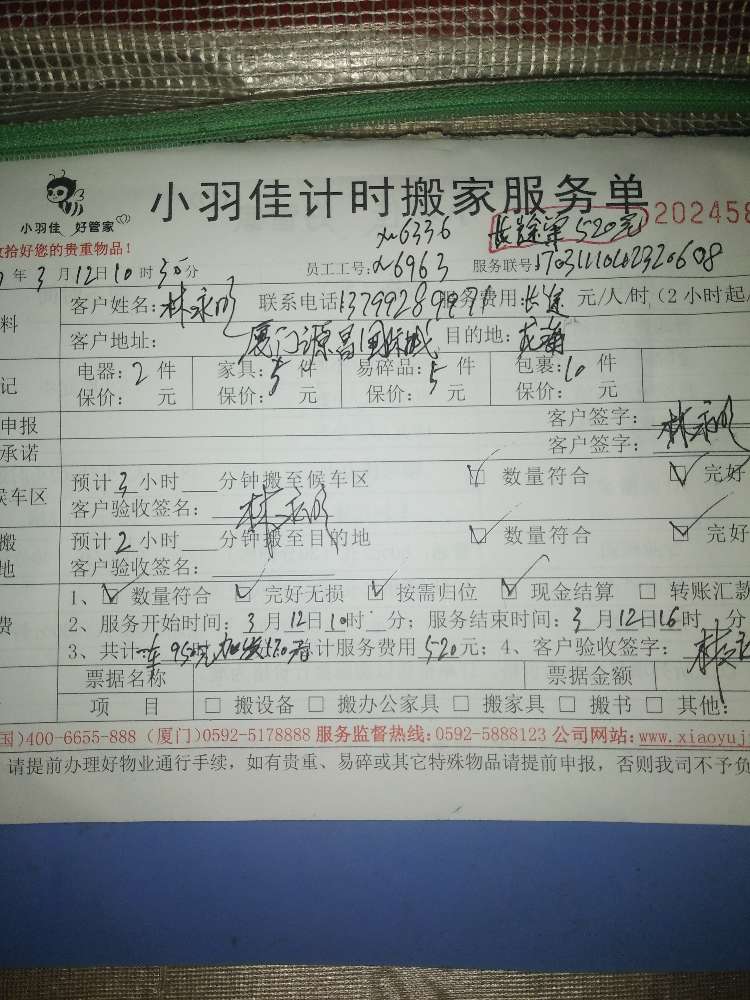 小羽佳计时搬家服务单
小羽佳 好管家
长途单 520元
202458
拾好您的贵重物品!
年 3 月 12 日 10 时 30 分
员工工号: 6336 6963
服务联号:
客户姓名: 林永明 联系电话: 服务费用: 长途 元/人/时 (2小时起/
客户地址: 厦门源昌国际城 目的地:
电器: 2 件 家具: 5 件 易碎品: 5 件 包裹: 10 件
保价: 元 保价: 元 保价: 元 保价: 元
申报 客户签字: 林永明
承诺 客户签字:
候车区 预计 3 小时 分钟搬至候车区 ☑ 数量符合 ☑ 完好
客户验收签名: 林永明
搬 预计 2 小时 分钟搬至目的地 ☑ 数量符合 ☑ 完好
地 客户验收签名:
1、☑ 数量符合 ☑ 完好无损 ☑ 按需归位 ☑ 现金结算 □ 转账汇款
费 2、服务开始时间: 3 月 12 日 10 时 分; 服务结束时间: 3 月 12 日 16 时 分
3、共计 一车 950元 计服务费用 520 元; 4、客户验收签字: 林永
票据名称 票据金额
项 目 □ 搬设备 □ 搬办公家具 □ 搬家具 □ 搬书 □ 其他:
国)400-6655-888 (厦门)0592-5178888 服务监督热线:0592-5888123 公司网站:www.xiaoyuj
请提前办理好物业通行手续,如有贵重、易碎或其它特殊物品请提前申报,否则我司不予负